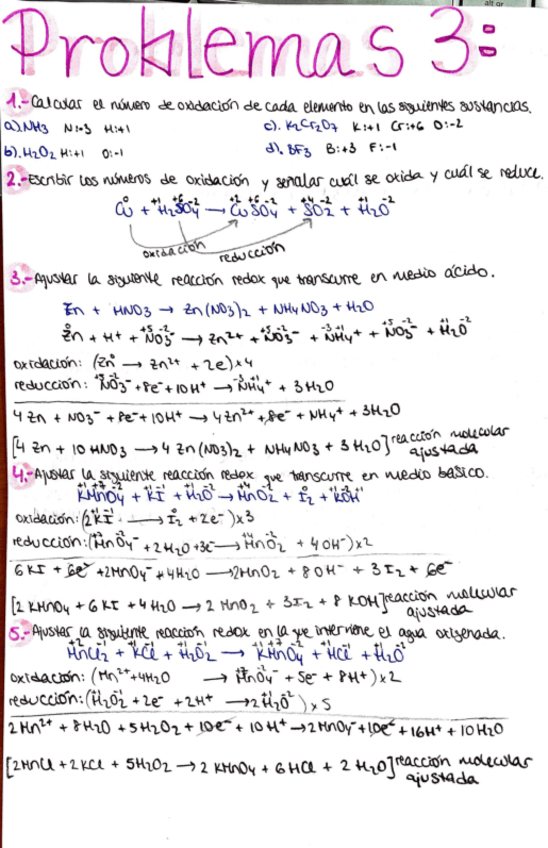 Problemas 3:
1.- Calcular el número de oxidación de cada elemento en las siguientes sustancias.
a). NH3 N:-3 H:+1 c). K2Cr2O7 K:+1 Cr:+6 O:-2
b). H2O2 H:+1 O:-1 d). BF3 B:+3 F:-1
2.- Escribir los números de oxidación y señalar cuál se oxida y cuál se reduce.
0 +1 +6 -2 +2 +6 -2 +4 -2 +1 -2
Cu + H2SO4 → CuSO4 + SO2 + H2O
oxidación reducción
3.- Ajustar la siguiente reacción redox que transcurre en medio ácido.
Zn + HNO3 → Zn(NO3)2 + NH4NO3 + H2O
0 +5 -2 +5 -2 -3 +1 +5 -2 +1 -2
Zn + H+ + NO3- → Zn2+ + NO3- + NH4+ + NO3- + H2O
oxidación: (Zn0 → Zn2+ + 2e) x4
reducción: +5 -2 NO3- + 8e- + 10H+ → -3 +1 NH4+ + 3H2O
4 Zn + NO3- + 8e- + 10H+ → 4 Zn2+ + 8e- + NH4+ + 3H2O
[4 Zn + 10 HNO3 → 4 Zn(NO3)2 + NH4NO3 + 3 H2O] reacción molecular
ajustada
4.- Ajustar la siguiente reacción redox que transcurre en medio básico.
+1 +7 -2 +1 -1 +1 -2 +4 -2 0 +1 -2 +1
KMnO4 + KI + H2O → MnO2 + I2 + KOH
oxidación: (2KI → I2 + 2e-) x3
reducción: (MnO4- + 2H2O + 3e- → MnO2 + 4OH-) x2
6 KI + 6e- + 2MnO4- + 4H2O → 2MnO2 + 8OH- + 3I2 + 6e-
[2 KMnO4 + 6 KI + 4H2O → 2 MnO2 + 3I2 + 8 KOH] reacción molecular
ajustada
5.- Ajustar la siguiente reacción redox en la que interviene el agua oxigenada.
MnCl2 + KCl + H2O2 → KMnO4 + HCl + H2O
oxidación: (Mn2+ + 4H2O → MnO4- + 5e- + 8H+) x2
reducción: (H2O2 + 2e- + 2H+ → 2H2O) x5
2Mn2+ + 8H2O + 5H2O2 + 10e- + 10H+ → 2MnO4- + 10e- + 16H+ + 10H2O
[2MnCl + 2KCl + 5H2O2 → 2 KMnO4 + 6HCl + 2H2O] reacción molecular
ajustada